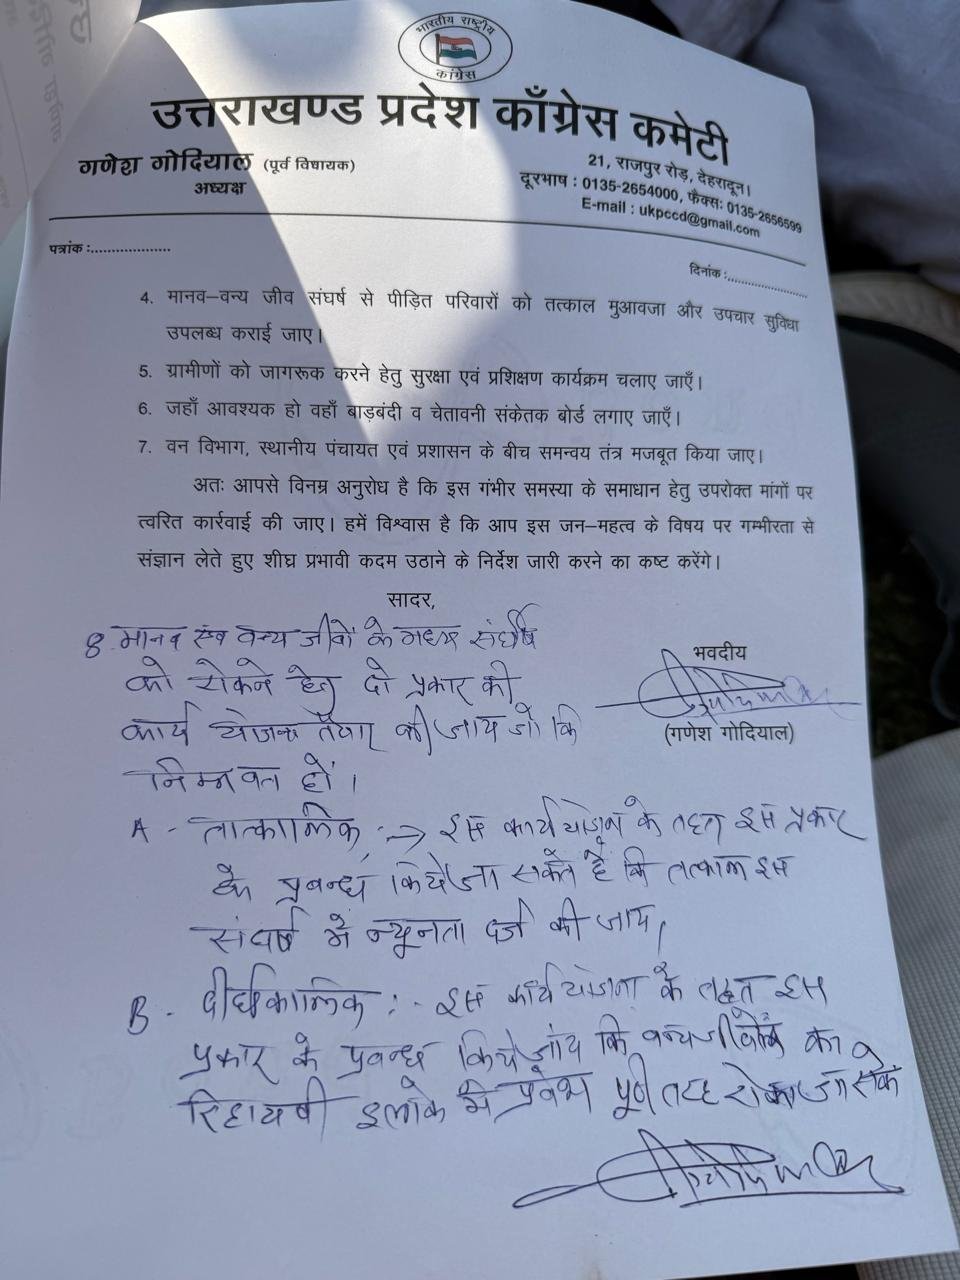 भारतीय राष्ट्रीय
कांग्रेस
उत्तराखण्ड प्रदेश काँग्रेस कमेटी
गणेश गोदियाल (पूर्व विधायक)
अध्यक्ष
21, राजपुर रोड़, देहरादून।
दूरभाष : 0135-2654000, फैक्सः 0135-2656599
E-mail : ukpccd@gmail.com
पत्रांक :...................
दिनांक :...................
4. मानव–वन्य जीव संघर्ष से पीड़ित परिवारों को तत्काल मुआवजा और उपचार सुविधा
उपलब्ध कराई जाए।
5. ग्रामीणों को जागरूक करने हेतु सुरक्षा एवं प्रशिक्षण कार्यक्रम चलाए जाएँ।
6. जहाँ आवश्यक हो वहाँ बाड़बंदी व चेतावनी संकेतक बोर्ड लगाए जाएँ।
7. वन विभाग, स्थानीय पंचायत एवं प्रशासन के बीच समन्वय तंत्र मजबूत किया जाए।
अतः आपसे विनम्र अनुरोध है कि इस गंभीर समस्या के समाधान हेतु उपरोक्त मांगों पर
त्वरित कार्रवाई की जाए। हमें विश्वास है कि आप इस जन–महत्व के विषय पर गम्भीरता से
संज्ञान लेते हुए शीघ्र प्रभावी कदम उठाने के निर्देश जारी करने का कष्ट करेंगे।
सादर,
भवदीय
(गणेश गोदियाल)
8. मानव एंव वन्य जीवों के मध्य संर्घष
को रोकने हेतु दो प्रकार की
कार्य योजना तैयार की जाय जो कि
निम्नवत हों।
A - तात्कालिक :→ इस कार्ययोजना के तहत इस प्रकार
के प्रबन्ध किये जा सकते है कि तत्काल इस
संघर्ष में न्यूनता दर्ज की जाय,
B - दीर्घकालिक :- इस कार्ययोजना के तहत इस
प्रकार के प्रबन्ध किये जांय कि वन्यजीवों का
रिहायषी इलाके में प्रवेश पूर्ण तरह रोका जा सके